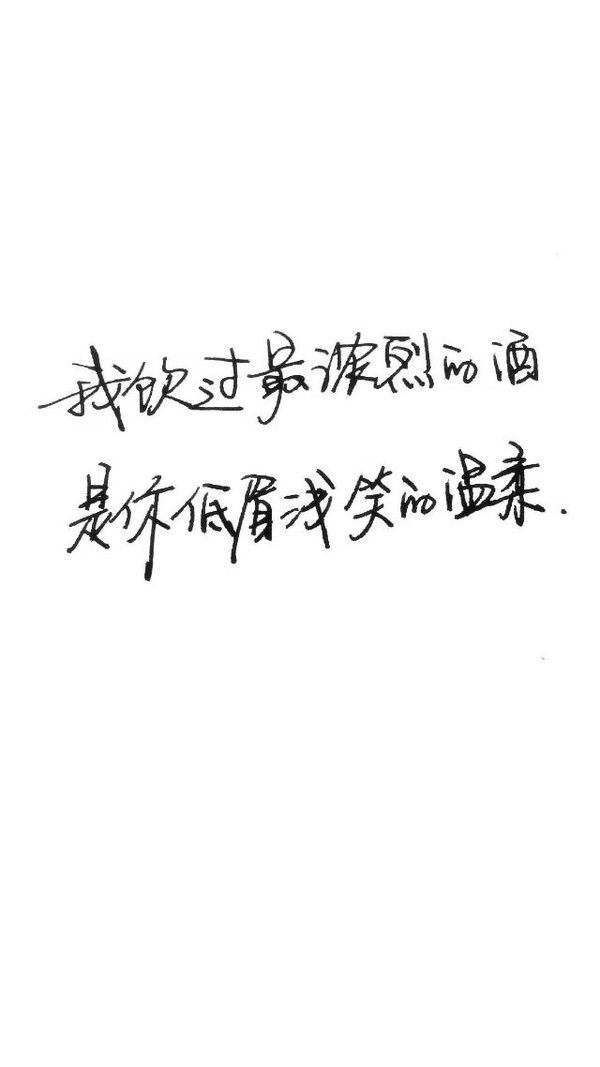 我饮过最浓烈的酒
是你低眉浅笑的温柔.